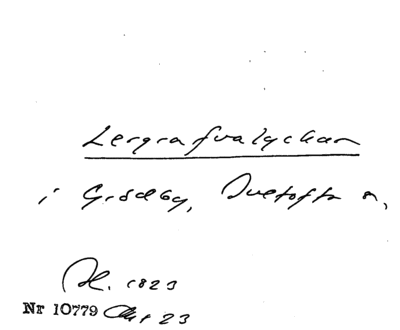 Lergrafvalyckan
i Grödby, Duetofta s,
Sk. 1823
Nr 10779 Akt 23